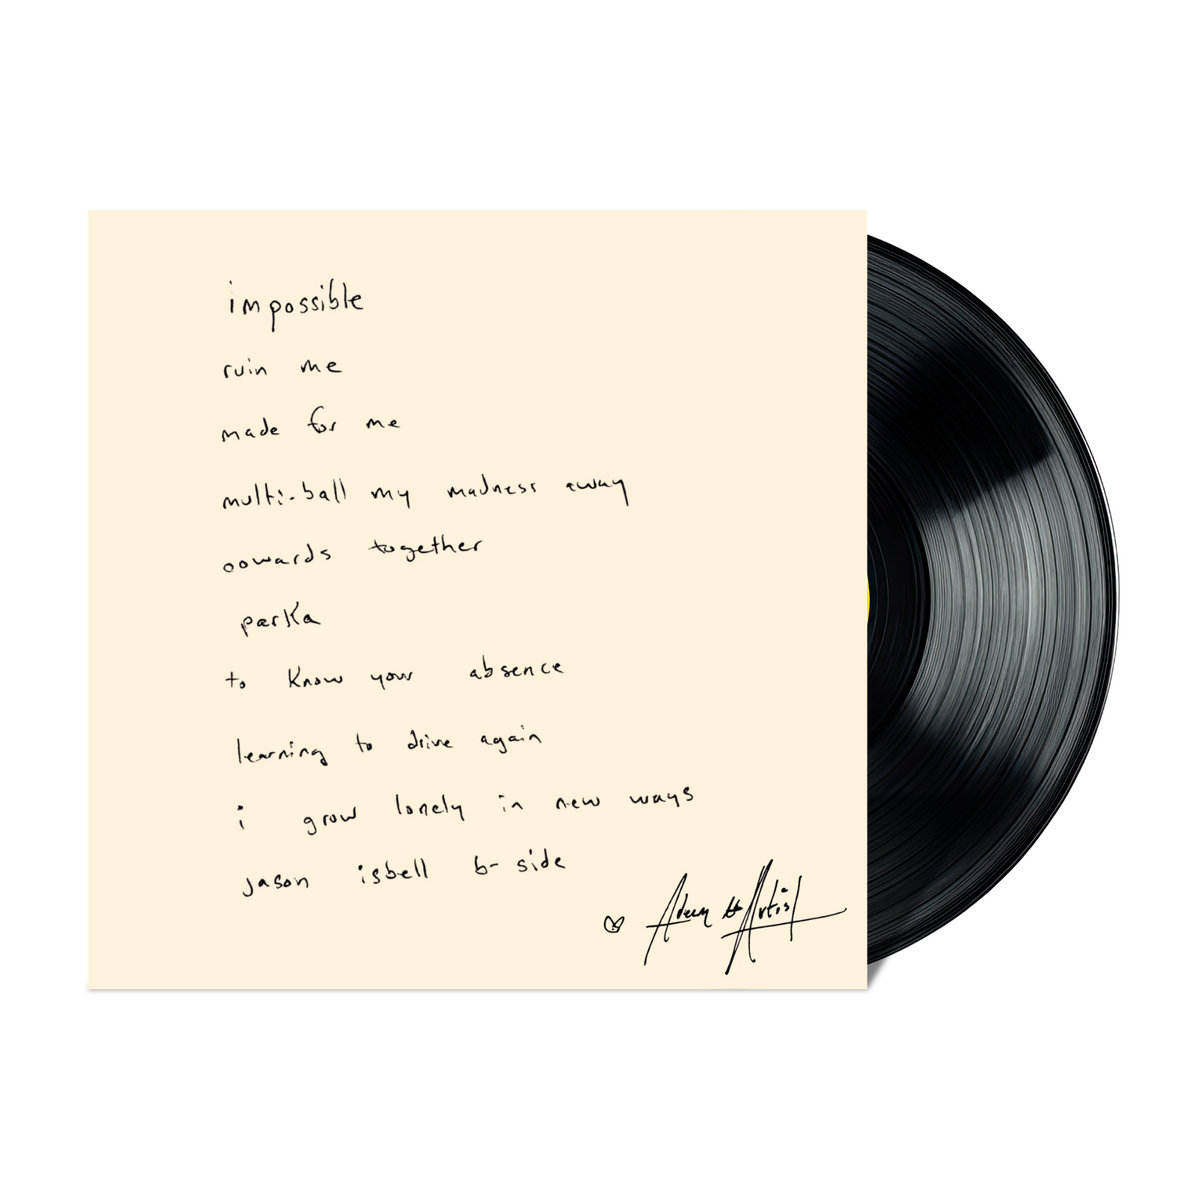 impossible
ruin me
made for me
multi-ball my madness away
oowards together
parka
to know your absence
learning to drive again
i grow lonely in new ways
jason isbell b-side
Adeem the Artist